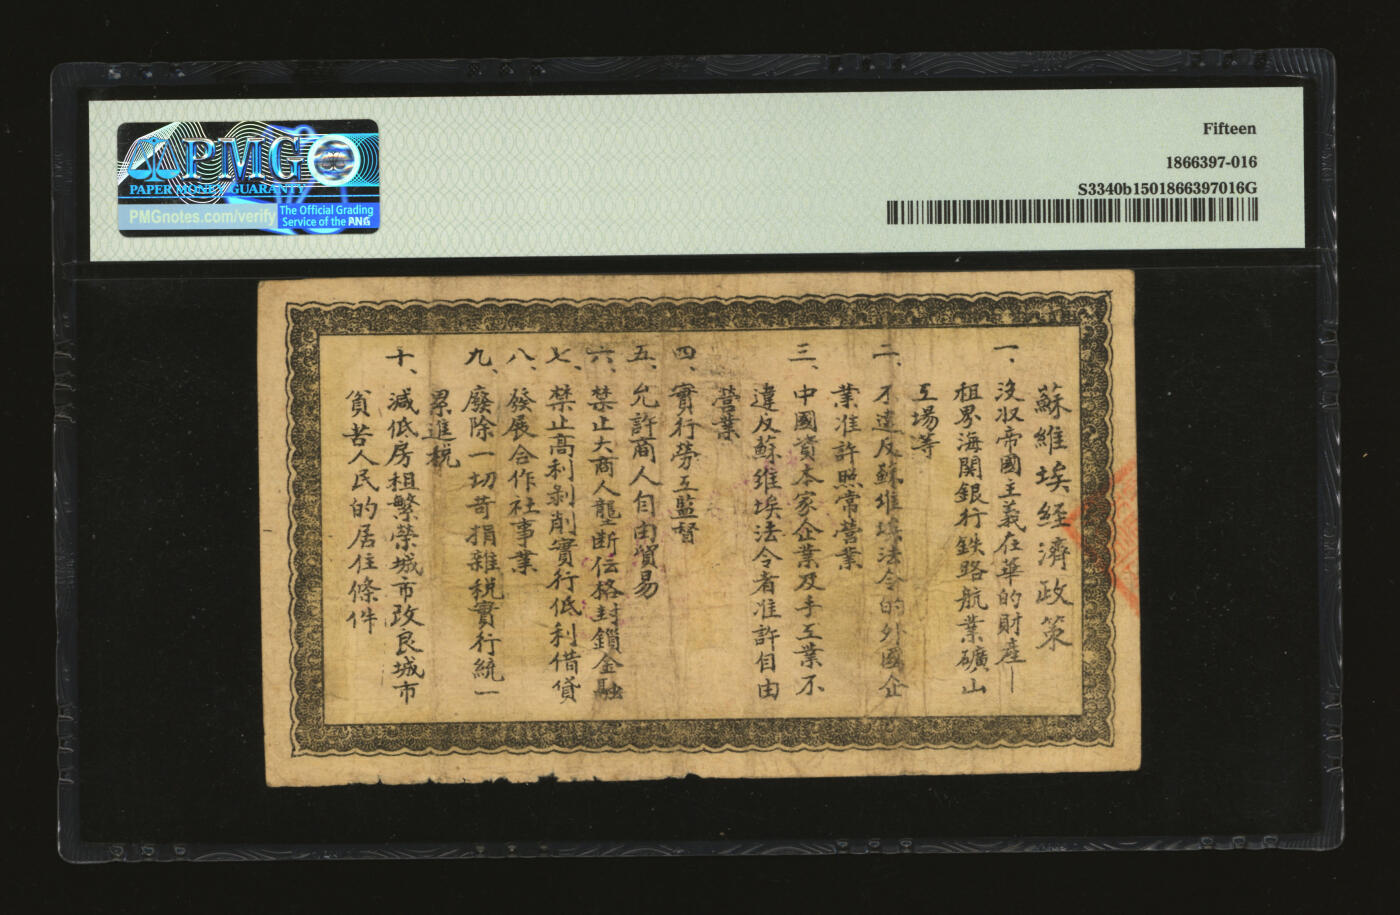 PMG
PAPER MONEY GUARANTY
PMGnotes.com/verify
The Official Grading
Service of the PNG
Fifteen
1866397-016
S3340b1501866397016G
蘇維埃経濟政策
一、沒収帝國主義在華的財產—
租界海関銀行鉄路航業礦山
工場等
二、不違反蘇維埃法令的外國企
業准許照常營業
三、中國資本家企業及手工業不
違反蘇維埃法令者准許自由
營業
四、實行勞工監督
五、允許商人自由貿易
六、禁止大商人壟断價格封鎖金融
七、禁止高利剥削實行低利借貸
八、發展合作社事業
九、廢除一切苛捐雜税實行統一
累進税
十、減低房租繁榮城市改良城市
貧苦人民的居住條件